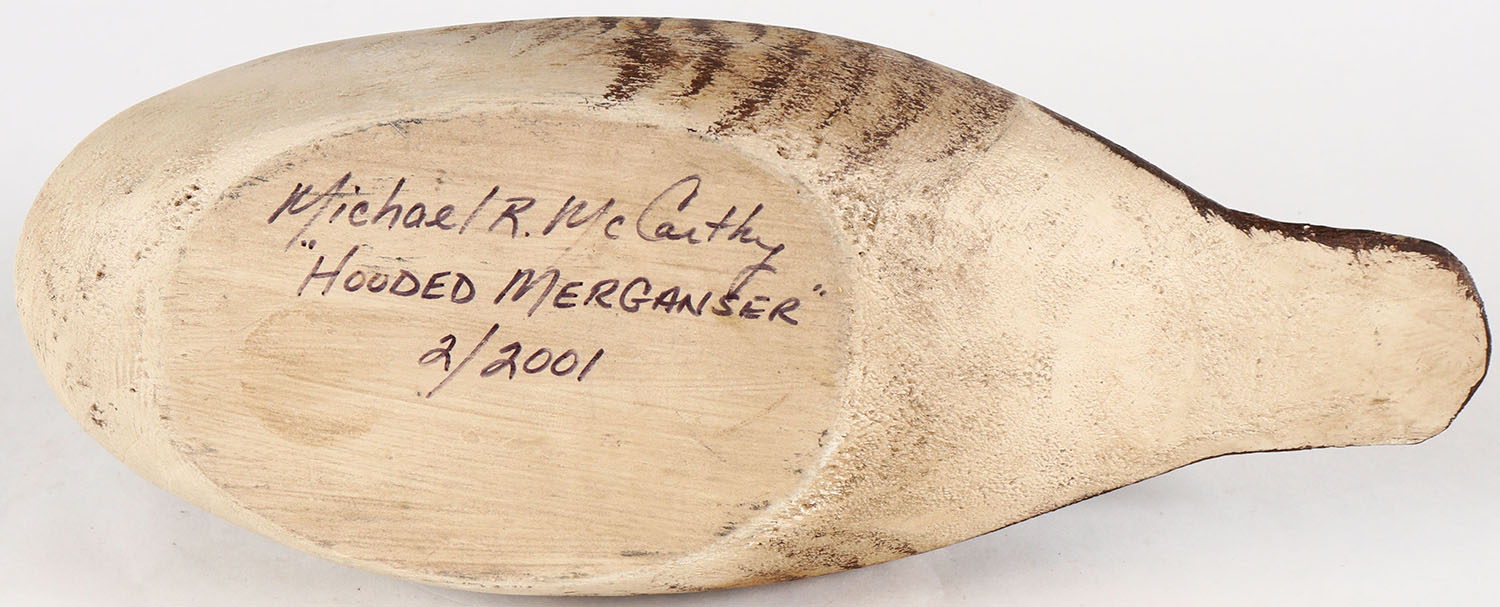 Michael R. McCarthy
"HOODED MERGANSER"
2/2001